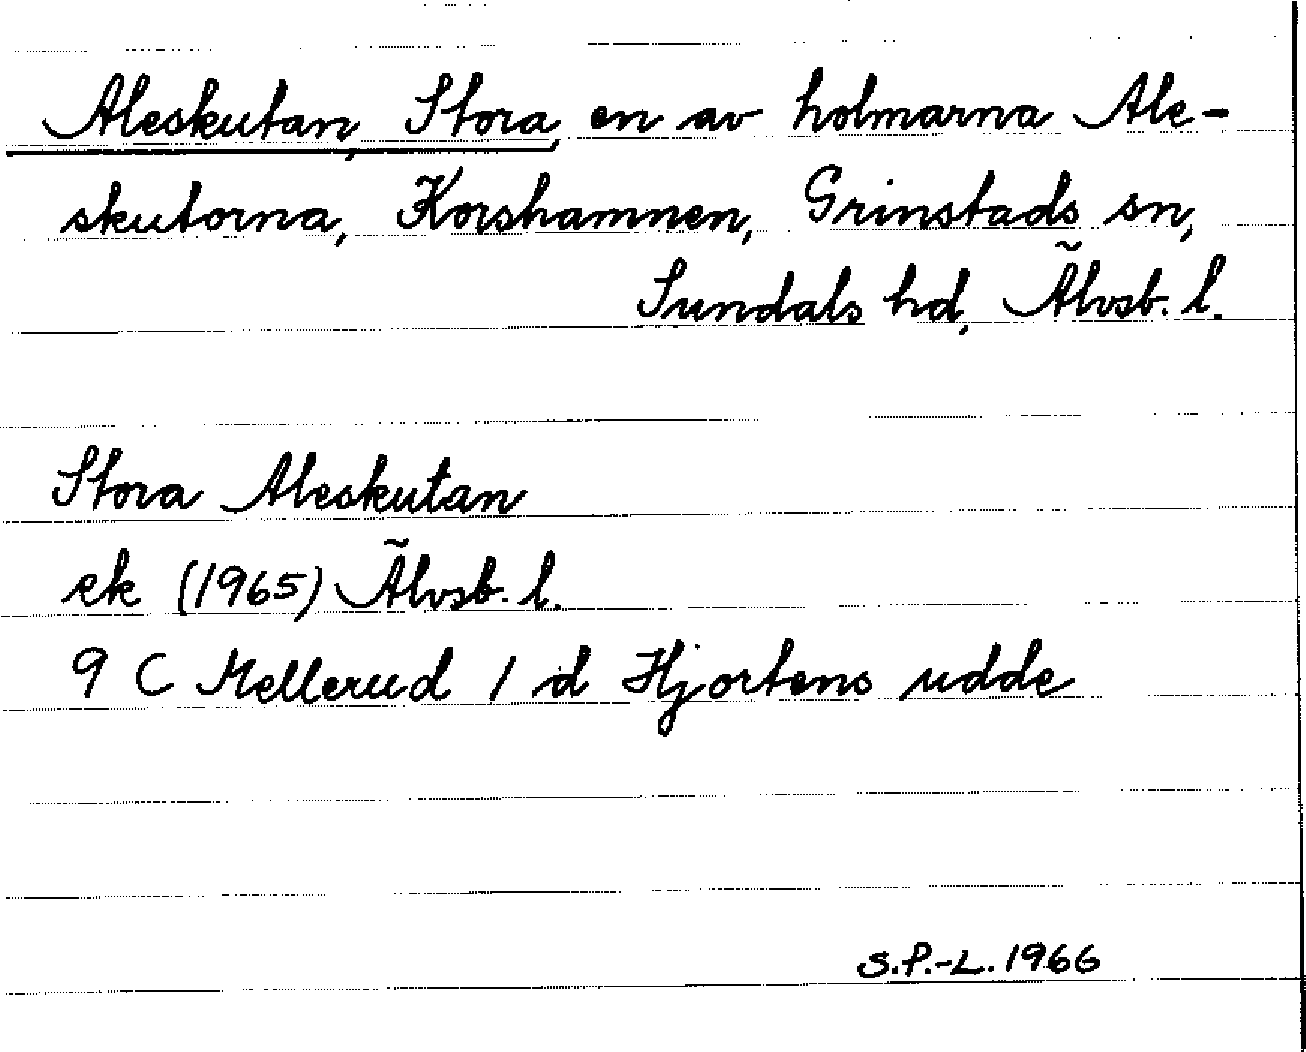 Aleskutan, Stora, en av holmarna Ale-
skutorna, Korshamnen, Grinstads sn,
Sundals hd, Älvsb. l.
Stora Aleskutan
ek (1965) Älvsb. l.
9 C Mellerud 1 d Hjortens udde
S.P.-L. 1966